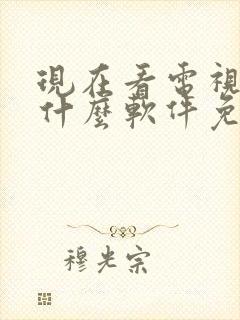 現在看電視
什麼軟件免
穆光宗